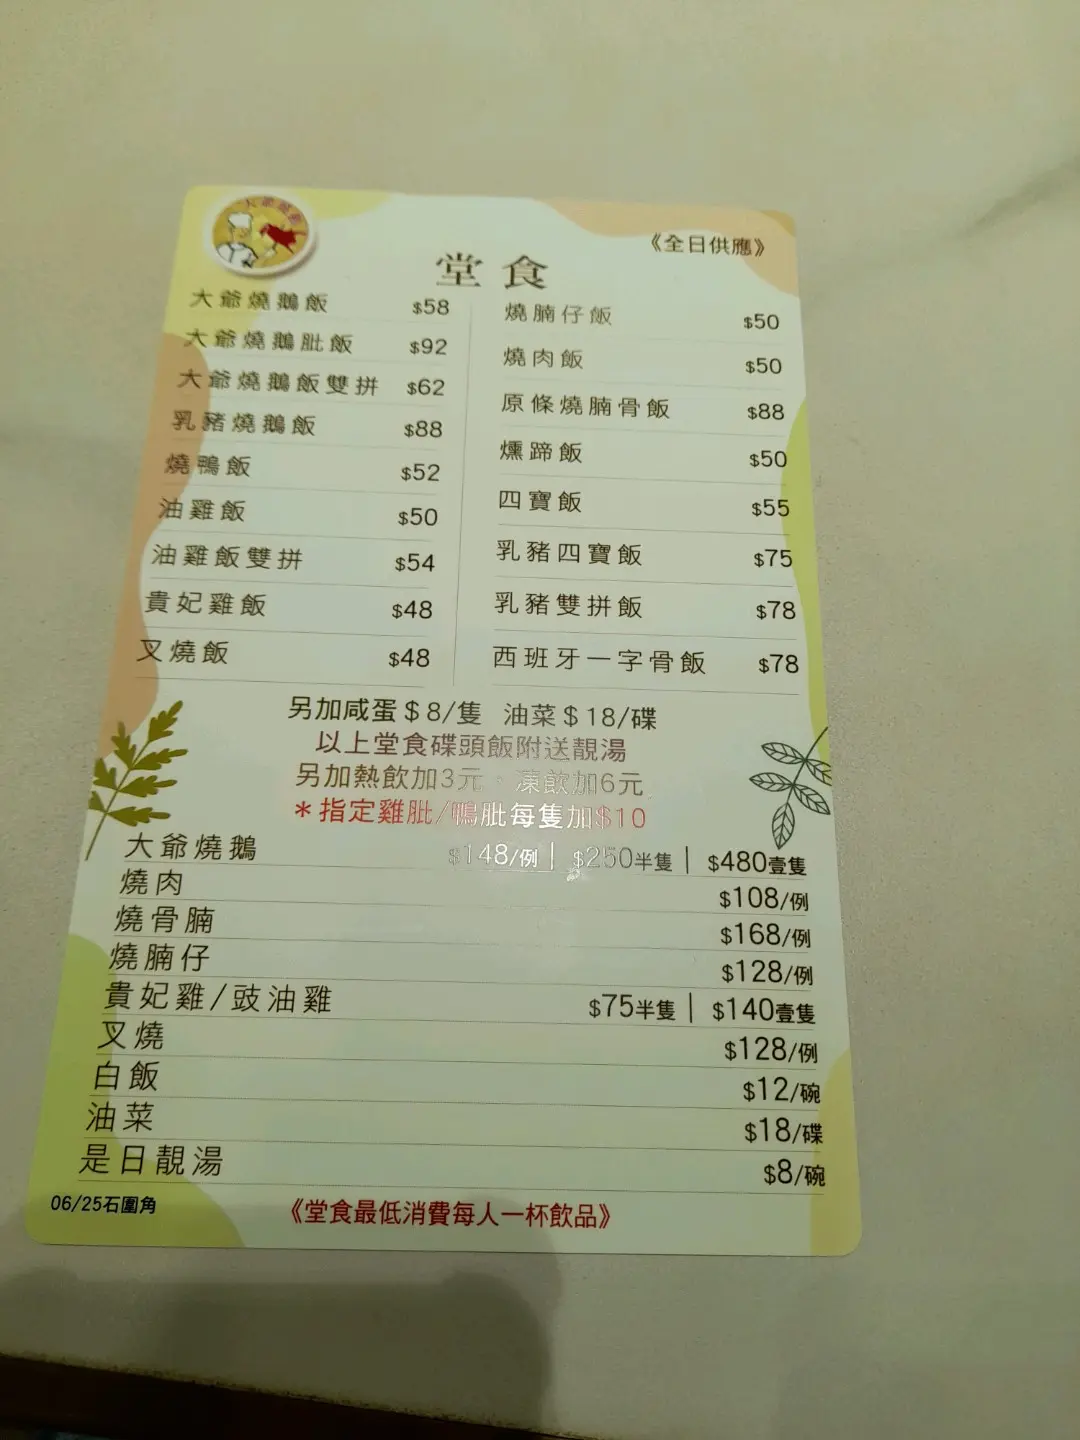 《全日供應》
堂食
大爺燒鵝飯 $58
大爺燒鵝肶飯 $92
大爺燒鵝飯雙拼 $62
乳豬燒鵝飯 $88
燒鴨飯 $52
油雞飯 $50
油雞飯雙拼 $54
貴妃雞飯 $48
叉燒飯 $48
燒腩仔飯 $50
燒肉飯 $50
原條燒腩骨飯 $88
燻蹄飯 $50
四寶飯 $55
乳豬四寶飯 $75
乳豬雙拼飯 $78
西班牙一字骨飯 $78
另加咸蛋$8/隻 油菜$18/碟
以上堂食碟頭飯附送靚湯
另加熱飲加3元、凍飲加6元
*指定雞肶/鴨肶每隻加$10
大爺燒鵝 $148/例 | $250半隻 | $480壹隻
燒肉 $108/例
燒骨腩 $168/例
燒腩仔 $128/例
貴妃雞/豉油雞 $75半隻 | $140壹隻
叉燒 $128/例
白飯 $12/碗
油菜 $18/碟
是日靚湯 $8/碗
06/25石圍角
《堂食最低消費每人一杯飲品》